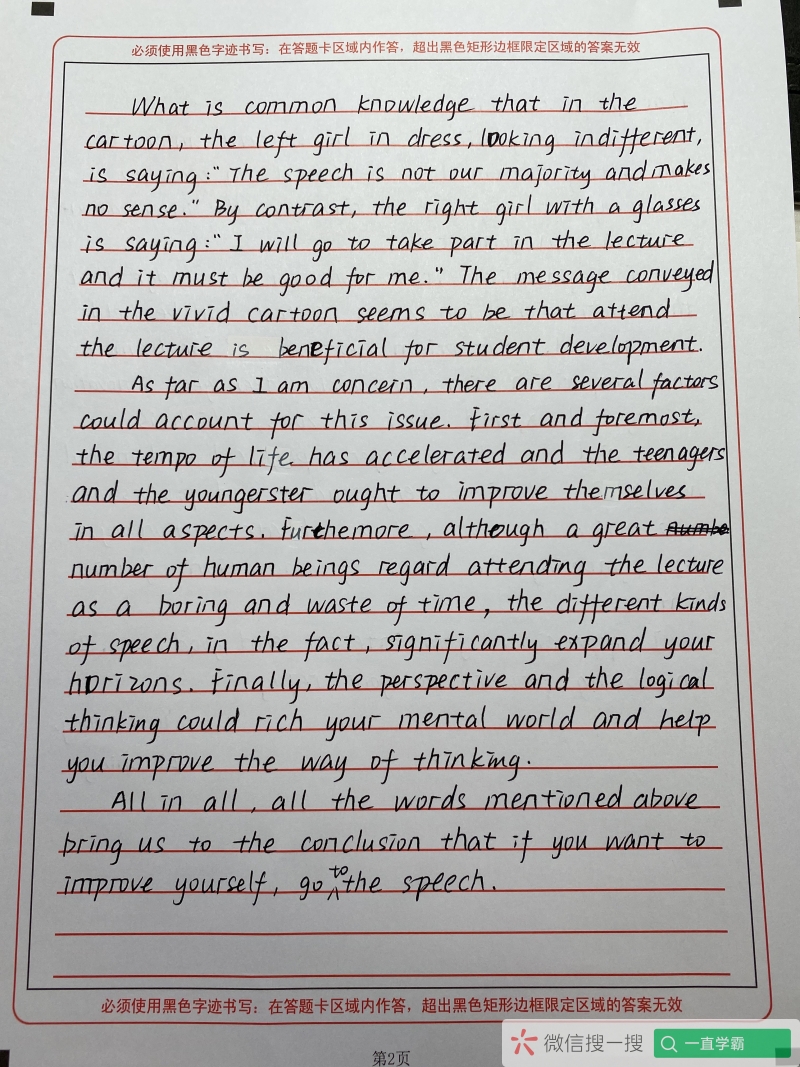 必须使用黑色字迹书写：在答题卡区域内作答，超出黑色矩形边框限定区域的答案无效
What is common knowledge that in the
cartoon, the left girl in dress, looking indifferent,
is saying:" The speech is not our majority and makes
no sense." By contrast, the right girl with a glasses
is saying:" I will go to take part in the lecture
and it must be good for me." The message conveyed
in the vivid cartoon seems to be that attend
the lecture is beneficial for student development.
As far as I am concern, there are several factors
could account for this issue. First and foremost,
the tempo of life has accelerated and the teenagers
and the youngerster ought to improve themselves
in all aspects. Furthemore, although a great
number of human beings regard attending the lecture
as a boring and waste of time, the different kinds
of speech, in the fact, significantly expand your
horizons. Finally, the perspective and the logical
thinking could rich your mental world and help
you improve the way of thinking.
All in all, all the words mentioned above
bring us to the conclusion that if you want to
improve yourself, go to the speech.
必须使用黑色字迹书写：在答题卡区域内作答，超出黑色矩形边框限定区域的答案无效
第2页
微信搜一搜
一直学霸